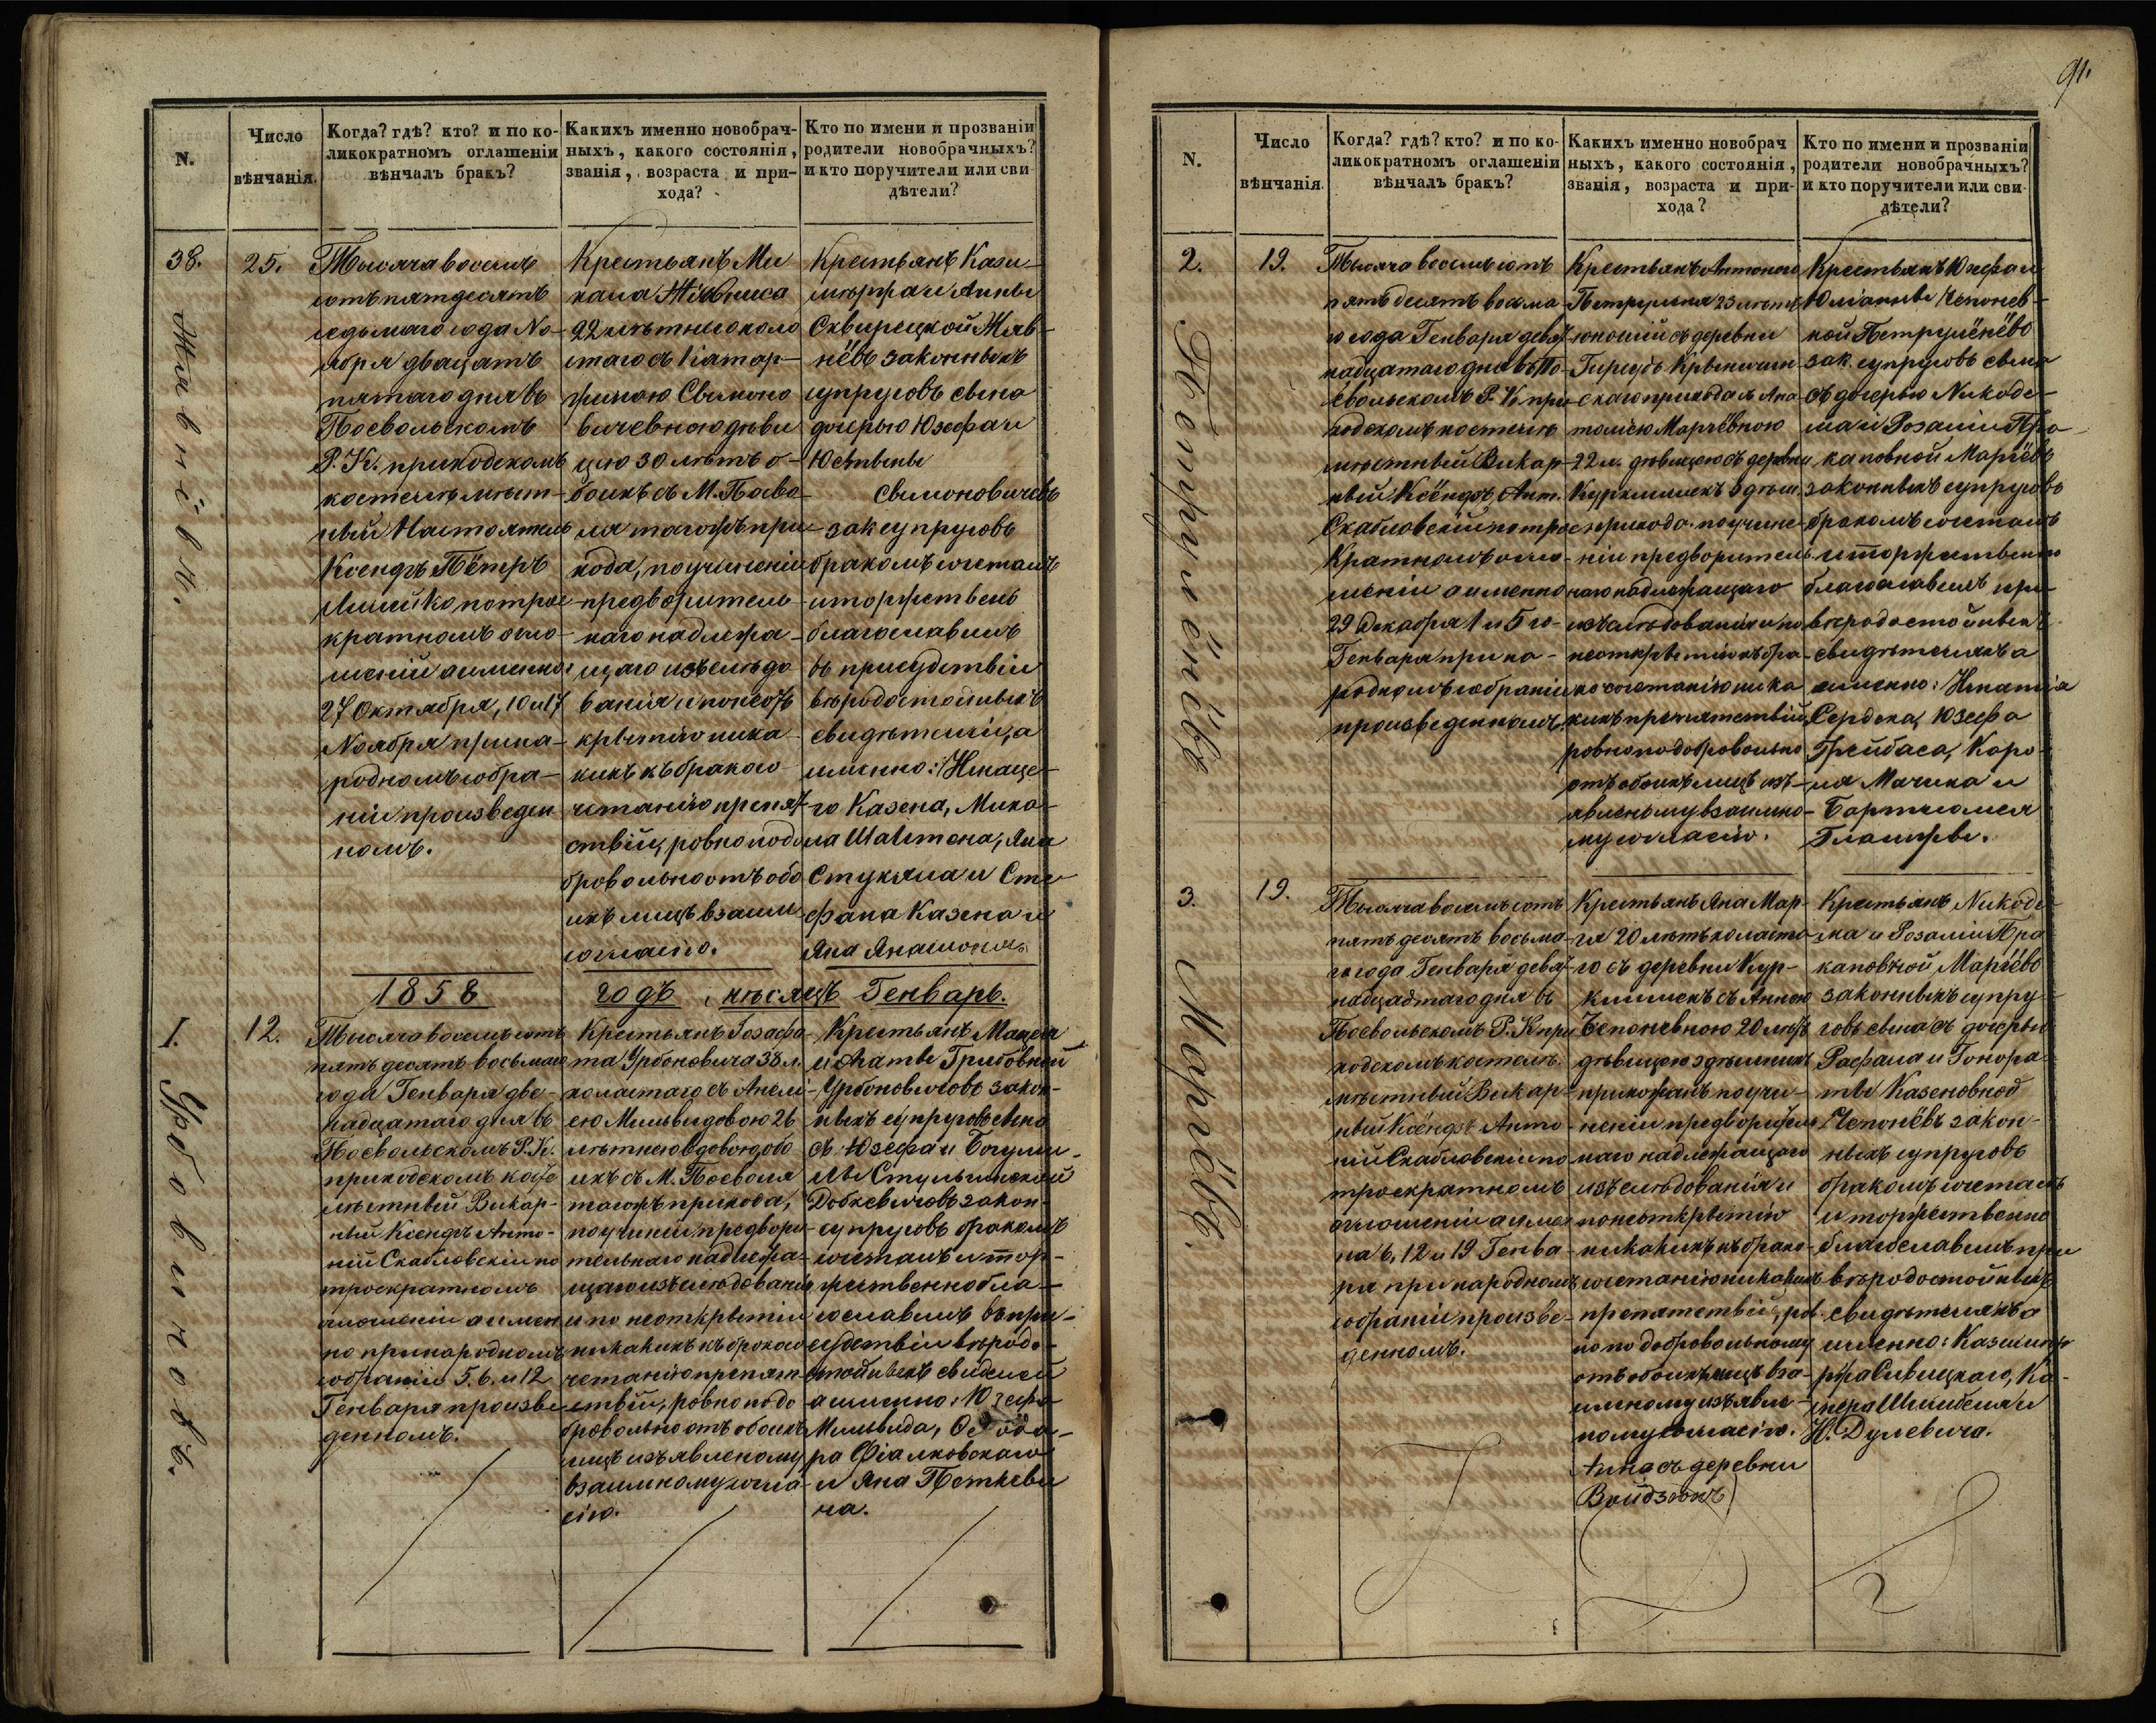 N.
Число
вѣнчанія.
Когда? гдѣ? кто? и по ко-
ликократномъ оглашеніи
вѣнчалъ бракъ?
Какихъ именно новобрач-
ныхъ, какого состоянія,
званія, возраста и при-
хода?
Кто по имени и прозванію
родители новобрачныхъ?
и кто поручители или сви-
дѣтели?
38.
25.
Тысяча восемь
сотъ пятдесятъ
седьмаго года Но-
ября двацать
пятаго дня въ
Поевольскомъ
Р. К. приходскомъ
костелѣ мѣст-
ный Настоятель
Ксендзъ Пётръ
по трое
кратномъ огло-
шеніи а именно:
27 Октября, 10 и 17
Ноября при на-
родномъ собра-
ніи произведен
номъ.
Крестьянъ Ми
хала
22 лѣтный холо
стаго съ Катар-
жиною Свыионо
вичевною дѣви
цею 30 лѣтъ о-
боихъ съ М. Поево-
ля тагожъ при
хода, по учиненіи
предворитель
наго надлежа-
щаго изслѣдо
ванія и по неот
крытію ника
кихъ къ браку со
четанію препят
ствій, ровно по до
бровольно отъ обо
ихъ лицъ взаим
согласію.
Крестьянъ Кази-
миржа и Анны
Сквирецкой Жяв-
нёвъ законныхъ
супруговъ сына
дочерью Юзефа и
Юстыны
Свыионовичевъ
зак супруговъ
бракомъ сочеталъ
и торжествен
благославилъ
въ присудствіи
вѣродостойныхъ
свидѣтелей, а
именно: Игнаце-
го Казена, Миха-
ла Шатена, Яна
Стукяла и Сте
фана Казена и
Яна
Жявнёвъ.
1858 годъ, мѣсяцъ Генварь.
1.
12.
Тысяча восемьсотъ
пятьдесятъ восьмаго
года Генваря две-
надцатаго дня въ
Поевольскомъ Р. К.
приходскомъ косте
мѣстный Викар-
ный Ксендзъ Анто-
ній Скабловскій по
троекратномъ
оглошеніи а имен
но при народномъ
собраніи 5. 6. и 12
Генваря произве
денномъ.
Крестьянъ Іозафа-
та Урбоновича 38 л.
холостаго съ Анели
ею Мильвидовою 26
лѣтнею вдовою, обо
ихъ съ М. Поеволя
тагожъ прихода,
по учинен предвори
тельнаго надлежа-
щаго изслѣдованія
и по неоткрытіи
никакихъ къ браку со
четанію препят-
ствій, ровно по до
бровольно отъ обоихъ
лицъ изъявленому
взаимному согла-
сію.
Крестьянъ Мацея
и Агаты Гритовной
Урбоновичовъ закон-
ныхъ супруговъ сына
съ Юзефа и Богуми-
лы Стульгинской
Добкевичовъ закон-
супруговъ бракомъ
сочеталъ и тор-
жественно бла-
гославилъ въ при-
судствіи вѣродо-
стойныхъ свидѣтел
а именно: Юзефа
Мильвида, Өеодо-
ра Фіалковскаго
и Яна Петкеви
ча.
Урбоновичовъ.
91.
N.
Число
вѣнчанія.
Когда? гдѣ? кто? и по ко-
ликократномъ оглашеніи
вѣнчалъ бракъ?
Какихъ именно новобрач
ныхъ, какого состоянія,
званія, возраста и при-
хода?
Кто по имени и прозванію
родители новобрачныхъ?
и кто поручители или сви-
дѣтели?
2.
19.
Тысяча восемьсотъ
пятьдесятъ восьма
го года Генваря девят
надцатаго дня въ По-
евольскомъ Р. К при
ходскомъ костелѣ
мѣстный Викар-
ный Ксёндзъ Ант.
Скабловскій по трое
кратномъ огло-
шеніи а именно
29 Декабря 1 и 5 го
Генваря при на-
родномъ собраніи
произведенномъ.
Крестьянъ Антонего
Петрулёня 23 лѣтн
юношій съ деревни
скаго прихода съ Ана
толіею Марчёвною
22 л. дѣвицею съ деревни
Куркишекъ здѣш
прихода. по учине-
ніи предворитель
наго надлежащаго
изслѣдованія и по
неоткрытію къ бра
ко сочетанію ника
кихъ препятствій
ровно по добровольно
отъ обоихъ лицъ изъ
явленому взаимно-
му согласію.
Крестьянъ Юзефа и
Юліанны Чепонев-
ной Петрулёнёвъ
зак. супруговъ сына
съ дочерью Никоде-
ма и Розаліи Пра
кановной Марчёвъ
законныхъ супруговъ
бракомъ сочеталъ
и торжественно
благославилъ при
вѣродостойныхъ
свидѣтеляхъ а
именно: Игнатія
Сердека, Юзефа
Грейбаса, Каро-
ля Мачика и
Бартломея
Петрулёнёвъ
3.
19.
Тысяча восемьсотъ
пятьдесятъ восьма
го года Генваря девят
надцатаго дня въ
Поевольскомъ Р. К при
ходскомъ костелѣ
мѣстный Викар-
ный Ксёндзъ Анто-
ній Скабловскій по
троекратномъ
оглошеніи а имен
на 6, 12 и 19 Генва-
ря при народномъ
собраніи произве-
денномъ.
Крестьянъ Яна Мар-
ча 20 лѣтъ холосто
го съ деревни Кур-
кишекъ съ Анною
Чепоневною 20 лѣтъ
дѣвицею здѣшнихъ
прихожанъ по учи-
неніи предворитель
наго надлежащаго
изслѣдованія и
по неоткрытію
никакихъ къ брако-
сочетанію никакихъ
препятствій, ров
но по добровольному
отъ обоихъ лицъ вза-
имному изъявле-
ному согласію.
Анна съ деревни
Войдзюнъ
Крестьянъ Никоде-
ма и Розаліи Пра
кановной Марчёвъ
законныхъ супру-
говъ сына съ дочерью
Рафала и Гонора-
ты Казеновной
Чепонёвъ закон-
ныхъ супруговъ
бракомъ сочеталъ
и торжественно
благославилъ при
вѣродостойныхъ
свидѣтеляхъ а
именно: Казими-
ржа Сивицкаго, Ка-
И. Дулевича.
Марчёвъ.